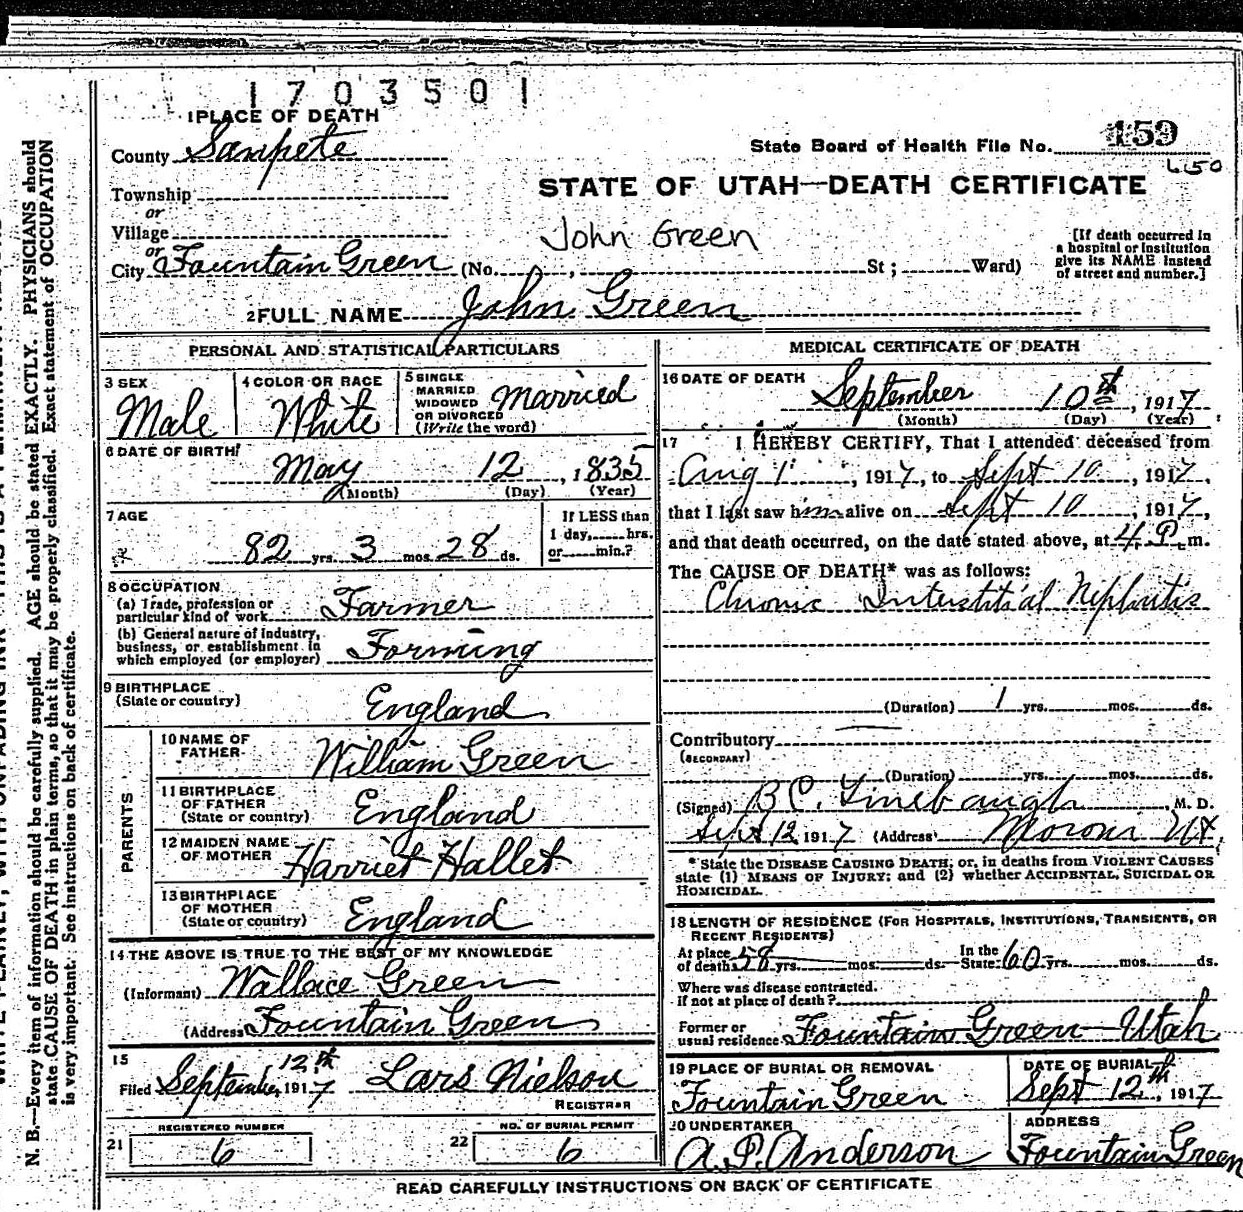 1703501
1 PLACE OF DEATH
County Sanpete
Township
or
Village
or
City Fountain Green (No. , St ; Ward)
State Board of Health File No. 159
450
STATE OF UTAH—DEATH CERTIFICATE
John Green
[If death occurred in
a hospital or institution
give its NAME instead
of street and number.]
2 FULL NAME John Green
PERSONAL AND STATISTICAL PARTICULARS
3 SEX
Male
4 COLOR OR RACE
White
5 SINGLE
MARRIED
WIDOWED
OR DIVORCED
(Write the word)
Married
6 DATE OF BIRTH
May 12, 1835
(Month) (Day) (Year)
7 AGE
82 yrs. 3 mos. 28 ds.
If LESS than
1 day, hrs.
or min.?
8 OCCUPATION
(a) Trade, profession or
particular kind of work Farmer
(b) General nature of industry,
business, or establishment in
which employed (or employer) Farming
9 BIRTHPLACE
(State or country) England
PARENTS
10 NAME OF
FATHER William Green
11 BIRTHPLACE
OF FATHER
(State or country) England
12 MAIDEN NAME
OF MOTHER Harriet Hallet
13 BIRTHPLACE
OF MOTHER
(State or country) England
14 THE ABOVE IS TRUE TO THE BEST OF MY KNOWLEDGE
(Informant) Wallace Green
(Address) Fountain Green
15
Filed September 12th, 1917 Lars Nielson
REGISTRAR
21 REGISTERED NUMBER
6
22 NO. OF BURIAL PERMIT
6
MEDICAL CERTIFICATE OF DEATH
16 DATE OF DEATH
September 10th, 1917
(Month) (Day) (Year)
17 I HEREBY CERTIFY, That I attended deceased from
Aug 1, 1917, to Sept 10, 1917,
that I last saw him alive on Sept 10, 1917,
and that death occurred, on the date stated above, at 4 P. m.
The CAUSE OF DEATH* was as follows:
Chronic Interstitial Nephritis
(Duration) 1 yrs. mos. ds.
Contributory
(SECONDARY)
(Duration) yrs. mos. ds.
(Signed) B C. Linebaugh, M. D.
Sept 12, 1917 (Address) Moroni Ut,
* State the DISEASE CAUSING DEATH; or, in deaths from VIOLENT CAUSES
state (1) MEANS OF INJURY; and (2) whether ACCIDENTAL, SUICIDAL OR
HOMICIDAL.
18 LENGTH OF RESIDENCE (FOR HOSPITALS, INSTITUTIONS, TRANSIENTS, OR
RECENT RESIDENTS)
At place
of death 58 yrs. mos. ds. In the State 60 yrs. mos. ds.
Where was disease contracted.
if not at place of death?
Former or
usual residence Fountain Green Utah
19 PLACE OF BURIAL OR REMOVAL
Fountain Green
DATE OF BURIAL
Sept 12th, 1917
20 UNDERTAKER
A. P. Anderson
ADDRESS
Fountain Green
READ CAREFULLY INSTRUCTIONS ON BACK OF CERTIFICATE
N. B.—Every item of information should be carefully supplied. AGE should be stated EXACTLY. PHYSICIANS should
state CAUSE OF DEATH in plain terms, so that it may be properly classified. Exact statement of OCCUPATION
is very important. See instructions on back of certificate.